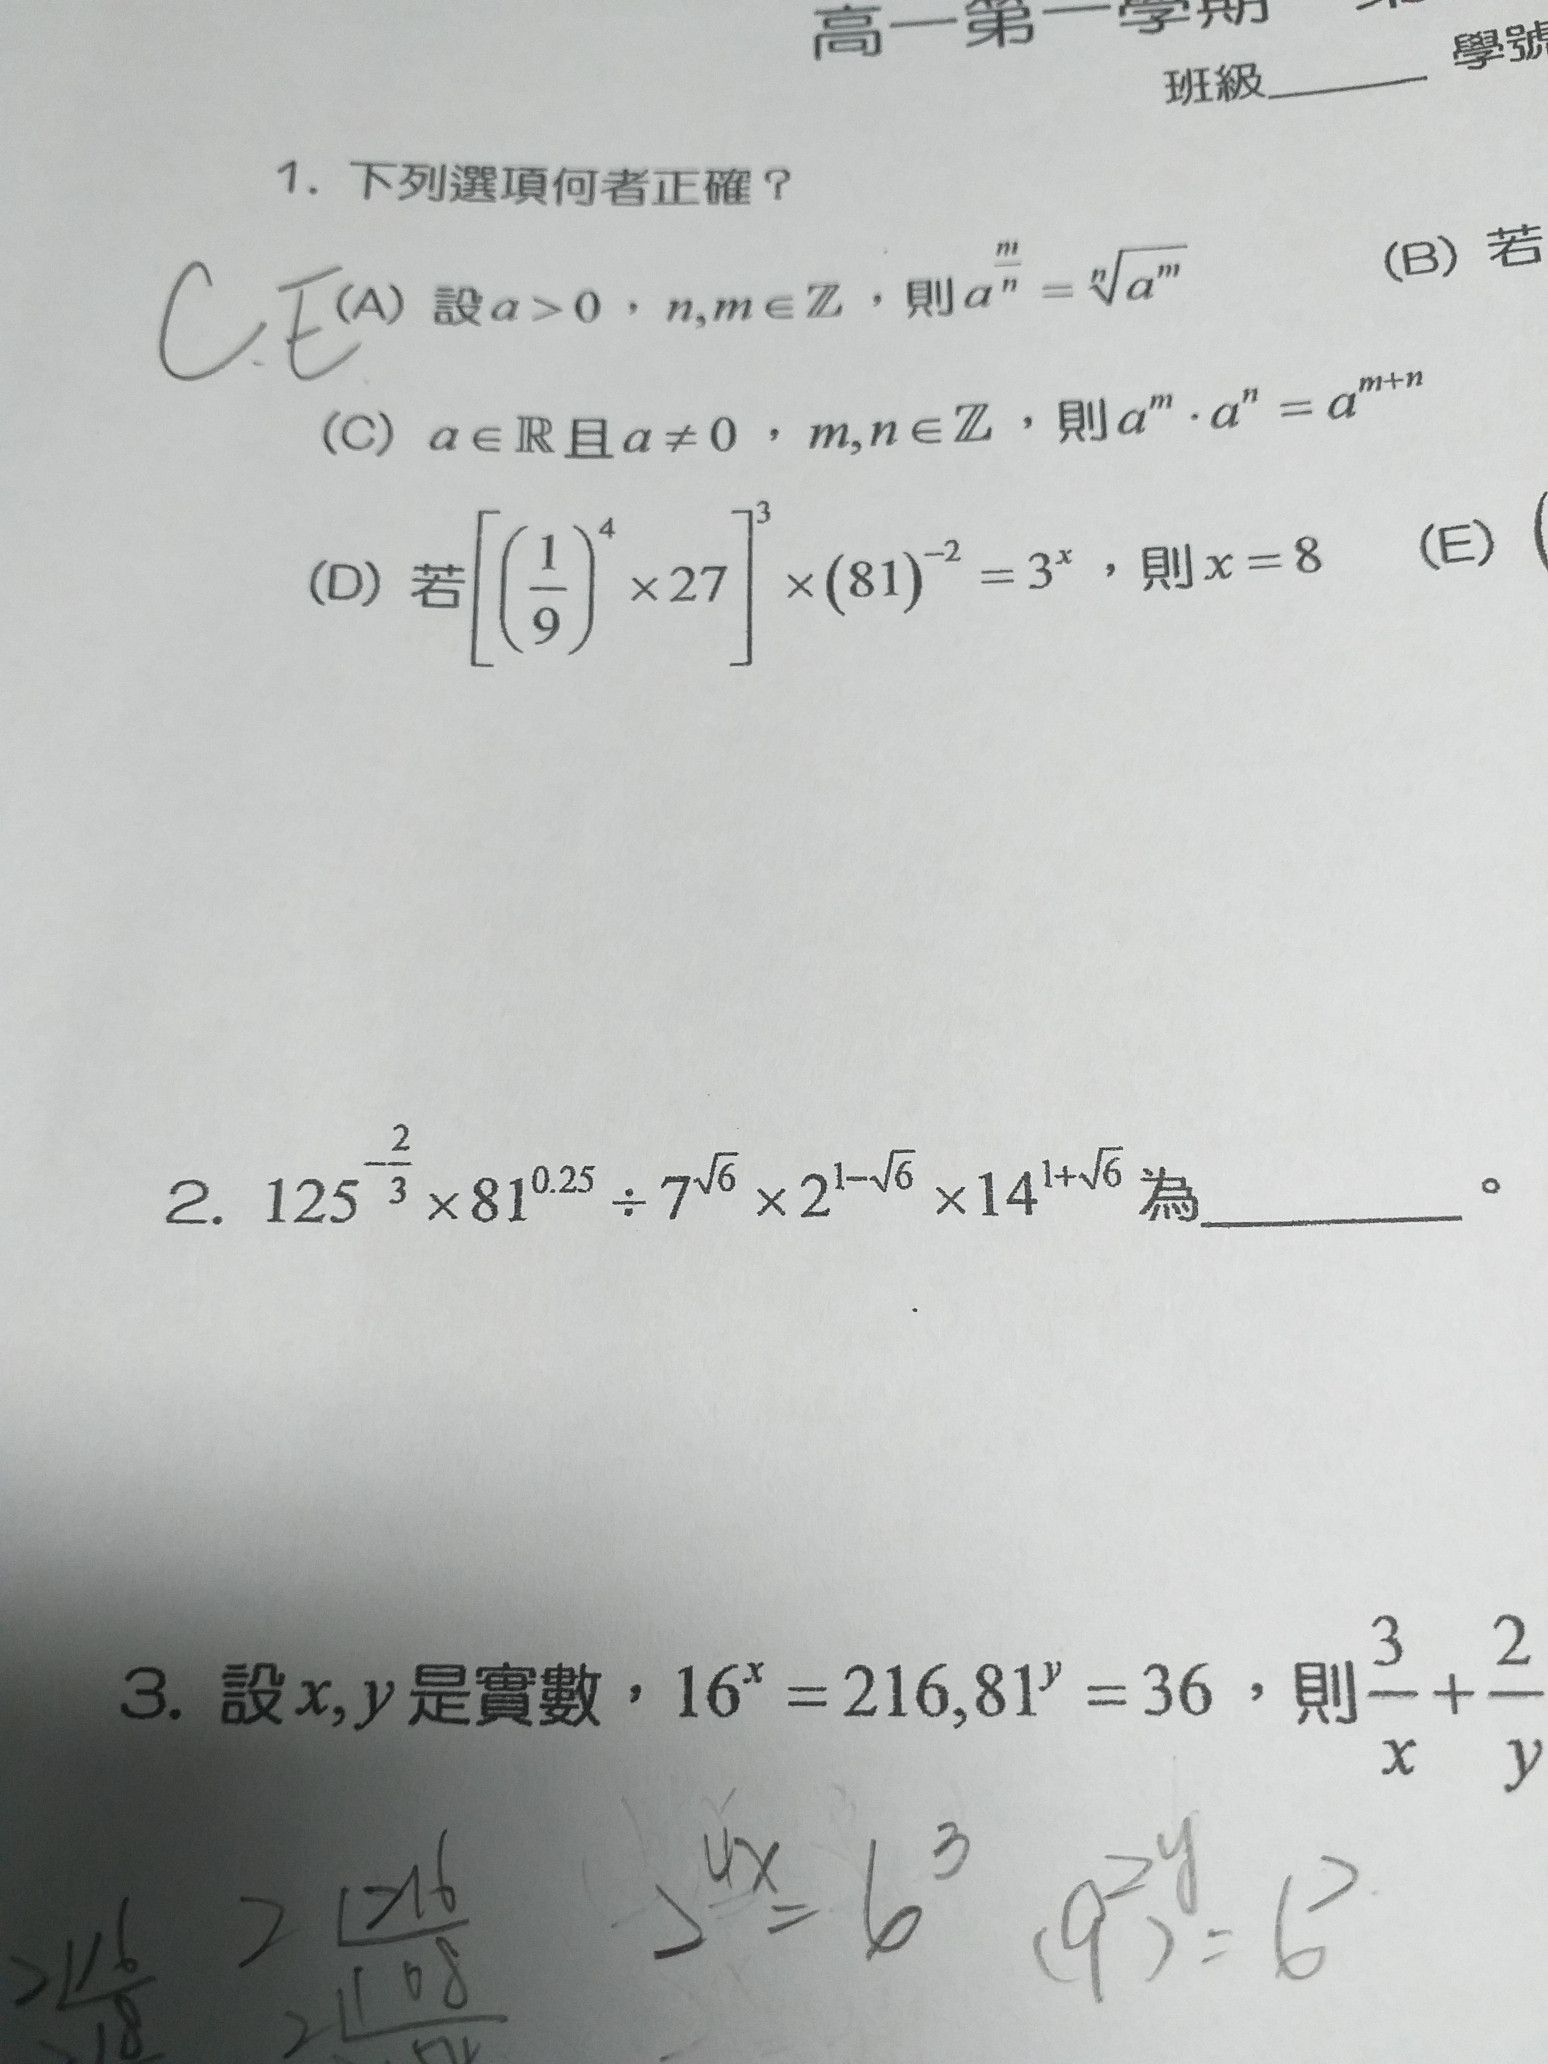 高一第一學期
班級______ 學號
1. 下列選項何者正確？
C.E
(A) 設 a > 0，n,m ∈ ℤ，則 a^{m/n} = ⁿ√(a^m) (B) 若
(C) a ∈ ℝ 且 a ≠ 0，m,n ∈ ℤ，則 a^m · a^n = a^{m+n}
(D) 若 [(1/9)^4 × 27]^3 × (81)^{-2} = 3^x，則 x = 8 (E) (
2. 125^{-2/3} × 81^{0.25} ÷ 7^{√6} × 2^{1-√6} × 14^{1+√6} 為______。
3. 設 x,y 是實數，16^x = 216,81^y = 36，則 3/x + 2/y
2^{4x} = 6^3 (9^2)^y = 6^2
2 216
2 108